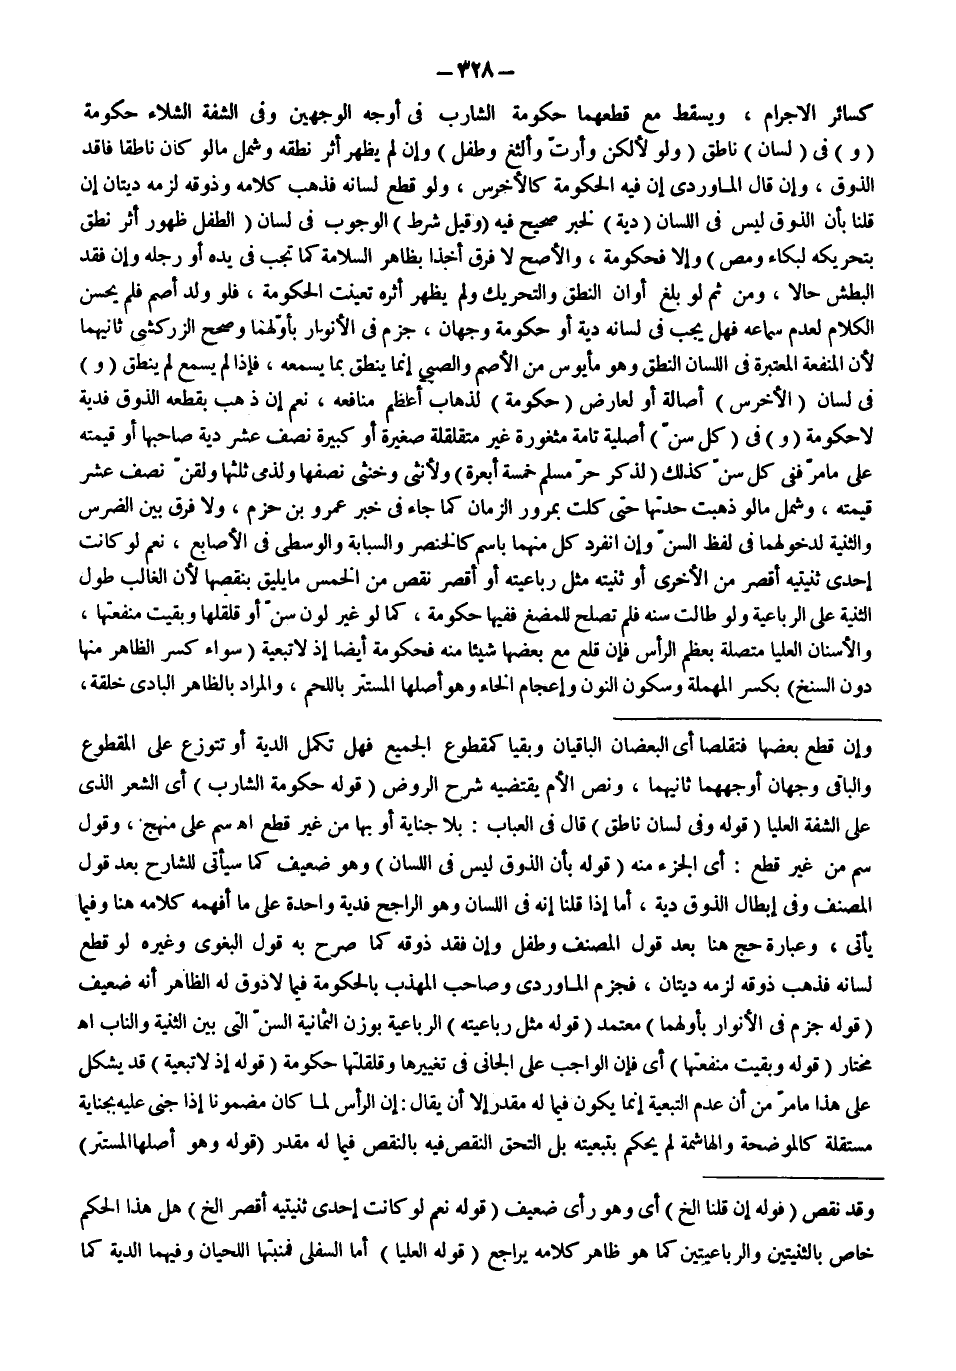 – ٣٢٨ –
كسائر الاجرام ، ويسقط مع قطعهما حكومة الشارب فى أوجه الوجهين وفى الشفة الشلاء حكومة
( و ) فى ( لسان ) ناطق ( ولو لألكن وأرتّ وألثغ وطفل ) وإن لم يظهر أثر نطقه وشمل مالو كان ناطقا فاقد
الذوق ، وإن قال الماوردى إن فيه الحكومة كالأخرس ، ولو قطع لسانه فذهب كلامه وذوقه لزمه ديتان إن
قلنا بأن الذوق ليس فى اللسان ( دية ) لخبر صحيح فيه (وقيل شرط ) الوجوب فى لسان ( الطفل ظهور أثر نطق
بتحريكه لبكاء ومص ) وإلا فحكومة ، والأصح لا فرق أخذا بظاهر السلامة كما تجب فى يده أو رجله وإن فقد
البطش حالا ، ومن ثم لو بلغ أوان النطق والتحريك ولم يظهر أثره تعينت الحكومة ، فلو ولد أصم فلم يحسن
الكلام لعدم سماعه فهل يجب فى لسانه دية أو حكومة وجهان ، جزم فى الأنوار بأولهما وصحح الزركشى ثانيهما
لأن المنفعة المعتبرة فى اللسان النطق وهو مأيوس من الأصم والصبي إنما ينطق بما يسمعه ، فإذا لم يسمع لم ينطق ( و )
فى لسان ( الأخرس ) أصالة أو لعارض ( حكومة ) لذهاب أعظم منافعه ، نعم إن ذهب بقطعه الذوق فدية
لاحكومة ( و ) فى ( كل سنّ ) أصلية تامة مثغورة غير متقلقلة صغيرة أو كبيرة نصف عشر دية صاحبها أو قيمته
على مامرّ ففى كل سنّ كذلك ( لذكر حرّ مسلم خمسة أبعرة ) ولأنثى وخنثى نصفها ولذمى ثلثها ولقنّ نصف عشر
قيمته ، وشمل مالو ذهبت حدتها حتى كلت بمرور الزمان كما جاء فى خبر عمرو بن حزم ، ولا فرق بين الضرس
والثنية لدخولهما فى لفظ السنّ وإن انفرد كل منهما باسم كالخنصر والسبابة والوسطى فى الأصابع ، نعم لو كانت
إحدى ثنيتيه أقصر من الأخرى أو ثنيته مثل رباعيته أو أقصر نقص من الخمس مايليق بنقصها لأن الغالب طول
الثنية على الرباعية ولو طالت سنه فلم تصلح للمضغ ففيها حكومة ، كما لو غير لون سنّ أو قلقلها وبقيت منفعتها ،
والأسنان العليا متصلة بعظم الرأس فإن قلع مع بعضها شيئا منه فحكومة أيضا إذ لاتبعية ( سواء كسر الظاهر منها
دون السنخ) بكسر المهملة وسكون النون وإعجام الخاء وهو أصلها المستتر باللحم ، والمراد بالظاهر البادى خلقة ،
وإن قطع بعضها فتقلصا أى البعضان الباقيان وبقيا كمقطوع الجميع فهل تكمل الدية أو تتوزع على المقطوع
والباقى وجهان أوجههما ثانيهما ، ونص الأم يقتضيه شرح الروض ( قوله حكومة الشارب ) أى الشعر الذى
على الشفة العليا ( قوله وفى لسان ناطق ) قال فى العباب : بلا جناية أو بها من غير قطع اه سم على منهج ، وقول
سم من غير قطع : أى الجزء منه ( قوله بأن الذوق ليس فى اللسان ) وهو ضعيف كما سيأتى للشارح بعد قول
المصنف وفى إبطال الذوق دية ، أما إذا قلنا إنه فى اللسان وهو الراجح فدية واحدة على ما أفهمه كلامه هنا وفيما
يأتى ، وعبارة حج هنا بعد قول المصنف وطفل وإن فقد ذوقه كما صرح به قول البغوى وغيره لو قطع
لسانه فذهب ذوقه لزمه ديتان ، فجزم الماوردى وصاحب المهذب بالحكومة فيما لاذوق له الظاهر أنه ضعيف
( قوله جزم فى الأنوار بأولهما ) معتمد ( قوله مثل رباعيته ) الرباعية بوزن الثمانية السنّ التى بين الثنية والناب اه
مختار ( قوله وبقيت منفعتها ) أى فإن الواجب على الجانى فى تغييرها وقلقلتها حكومة ( قوله إذ لاتبعية ) قد يشكل
على هذا مامرّ من أن عدم التبعية إنما يكون فيما له مقدر إلا أن يقال : إن الرأس لما كان مضمونا إذا جنى عليه بجناية
مستقلة كالموضحة والهاشمة لم يحكم بتبعيته بل التحق النقص فيه بالنقص فيما له مقدر (قوله وهو أصلها المستتر)
وقد نقص ( قوله إن قلنا الخ ) أى وهو رأى ضعيف ( قوله نعم لو كانت إحدى ثنيتيه أقصر الخ ) هل هذا الحكم
خاص بالثنيتين والرباعيتين كما هو ظاهر كلامه يراجع ( قوله العليا ) أما السفلى فمنبتها اللحيان وفيهما الدية كما